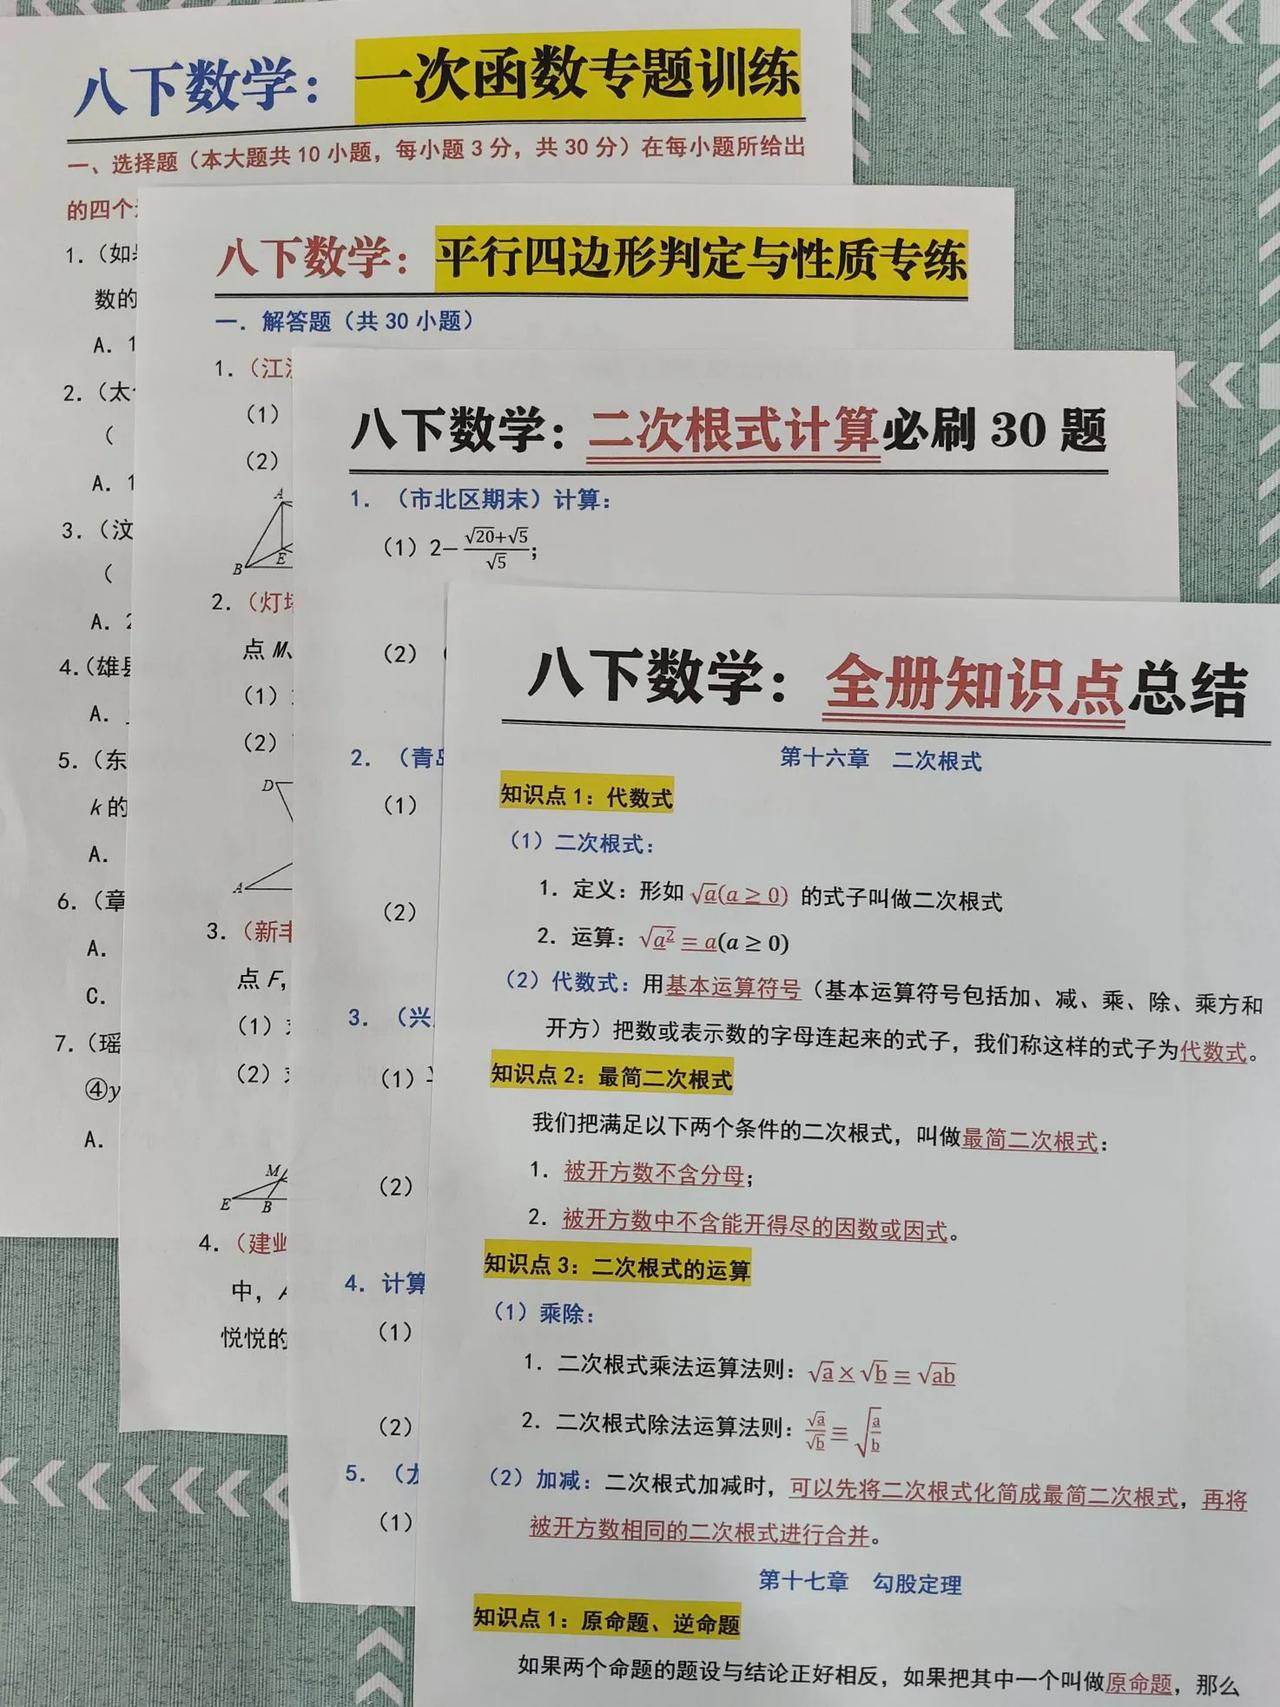 八下数学：一次函数专题训练
一、选择题（本大题共10小题，每小题3分，共30分）在每小题所给出
的四个
1.（如
数的
A. 1
2.（太
（
A. 1
3.（汶
（
A. 2
4.（雄县
A.
5.（东
k的
A.
6.（章
A.
C.
7.（瑶
④y
A.
八下数学：平行四边形判定与性质专练
一．解答题（共30小题）
1.（江
（1）
（2）
A
B
E
2.（灯塔
点M、
（1）
（2）
D
A
3.（新丰
点F，
（1）
（2）
M
E
B
4.（建业
中，A
悦悦的
八下数学：二次根式计算必刷30题
1. （市北区期末）计算：
（1）2−(√20+√5)/√5；
（2）
2. （青岛
（1）
（2）
3. （兴
（1）
（2）
4. 计算
（1）
（2）
5. （
（1）
八下数学：全册知识点总结
第十六章 二次根式
知识点1：代数式
（1）二次根式：
1. 定义：形如√a(a ≥ 0) 的式子叫做二次根式
2. 运算：√a² = a(a ≥ 0)
（2）代数式：用基本运算符号（基本运算符号包括加、减、乘、除、乘方和
开方）把数或表示数的字母连起来的式子，我们称这样的式子为代数式。
知识点2：最简二次根式
我们把满足以下两个条件的二次根式，叫做最简二次根式：
1. 被开方数不含分母；
2. 被开方数中不含能开得尽的因数或因式。
知识点3：二次根式的运算
（1）乘除：
1. 二次根式乘法运算法则：√a × √b = √ab
2. 二次根式除法运算法则：√a/√b = √(a/b)
（2）加减：二次根式加减时，可以先将二次根式化简成最简二次根式，再将
被开方数相同的二次根式进行合并。
第十七章 勾股定理
知识点1：原命题、逆命题
如果两个命题的题设与结论正好相反，如果把其中一个叫做原命题，那么